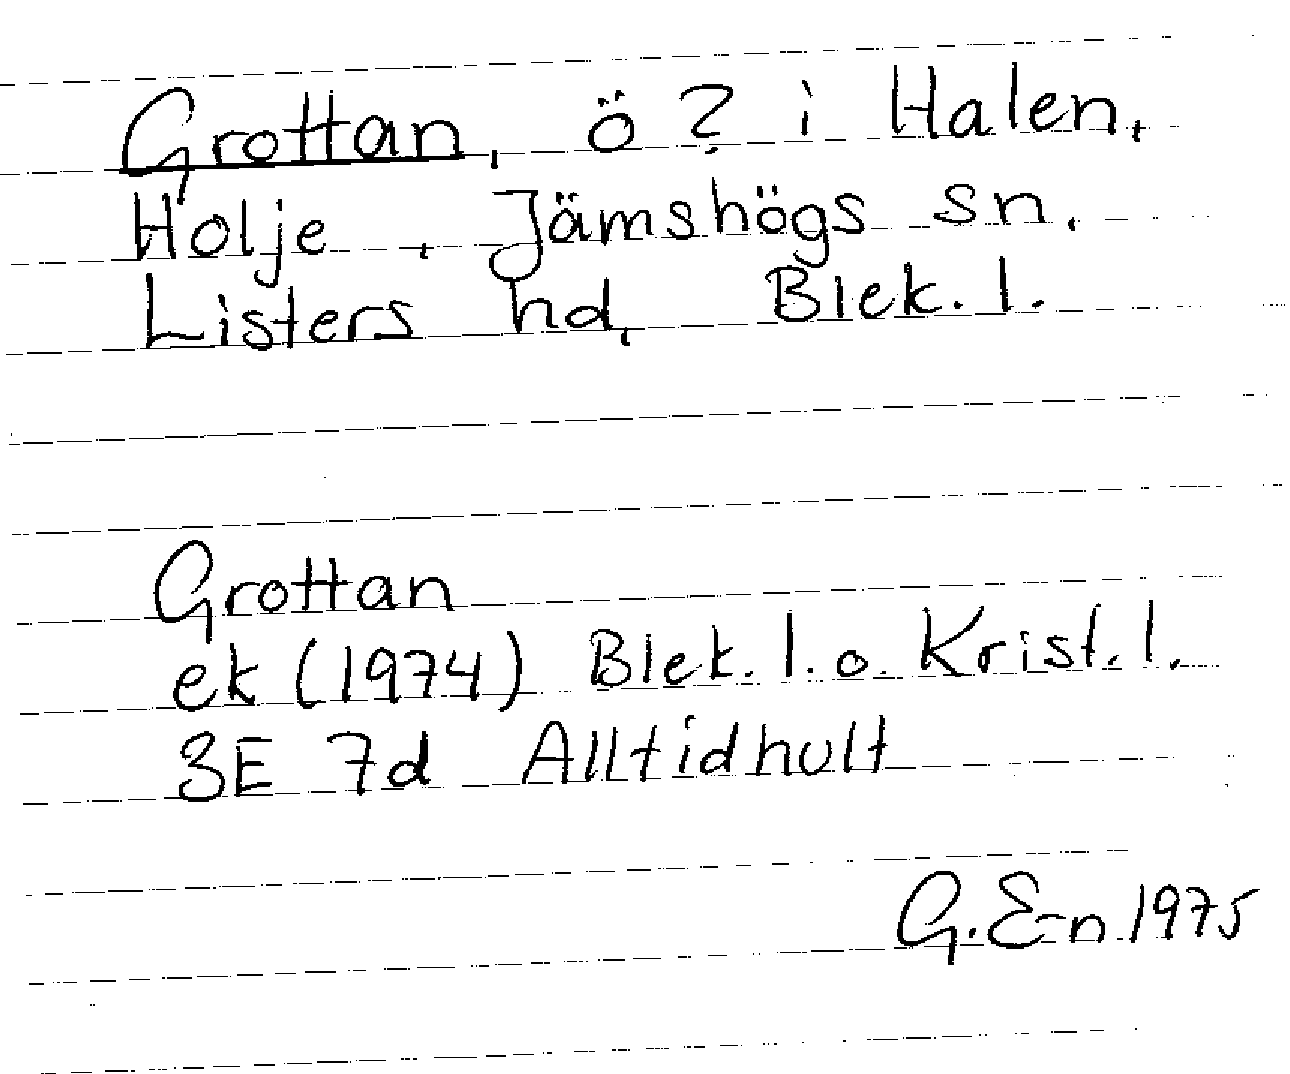 Grottan, ö? i Halen,
Holje, Jämshögs sn,
Listers hd, Blek. l.
Grottan
ek (1974) Blek. l. o. Krist. l.
3E 7d Alltidhult
G. E-n 1975